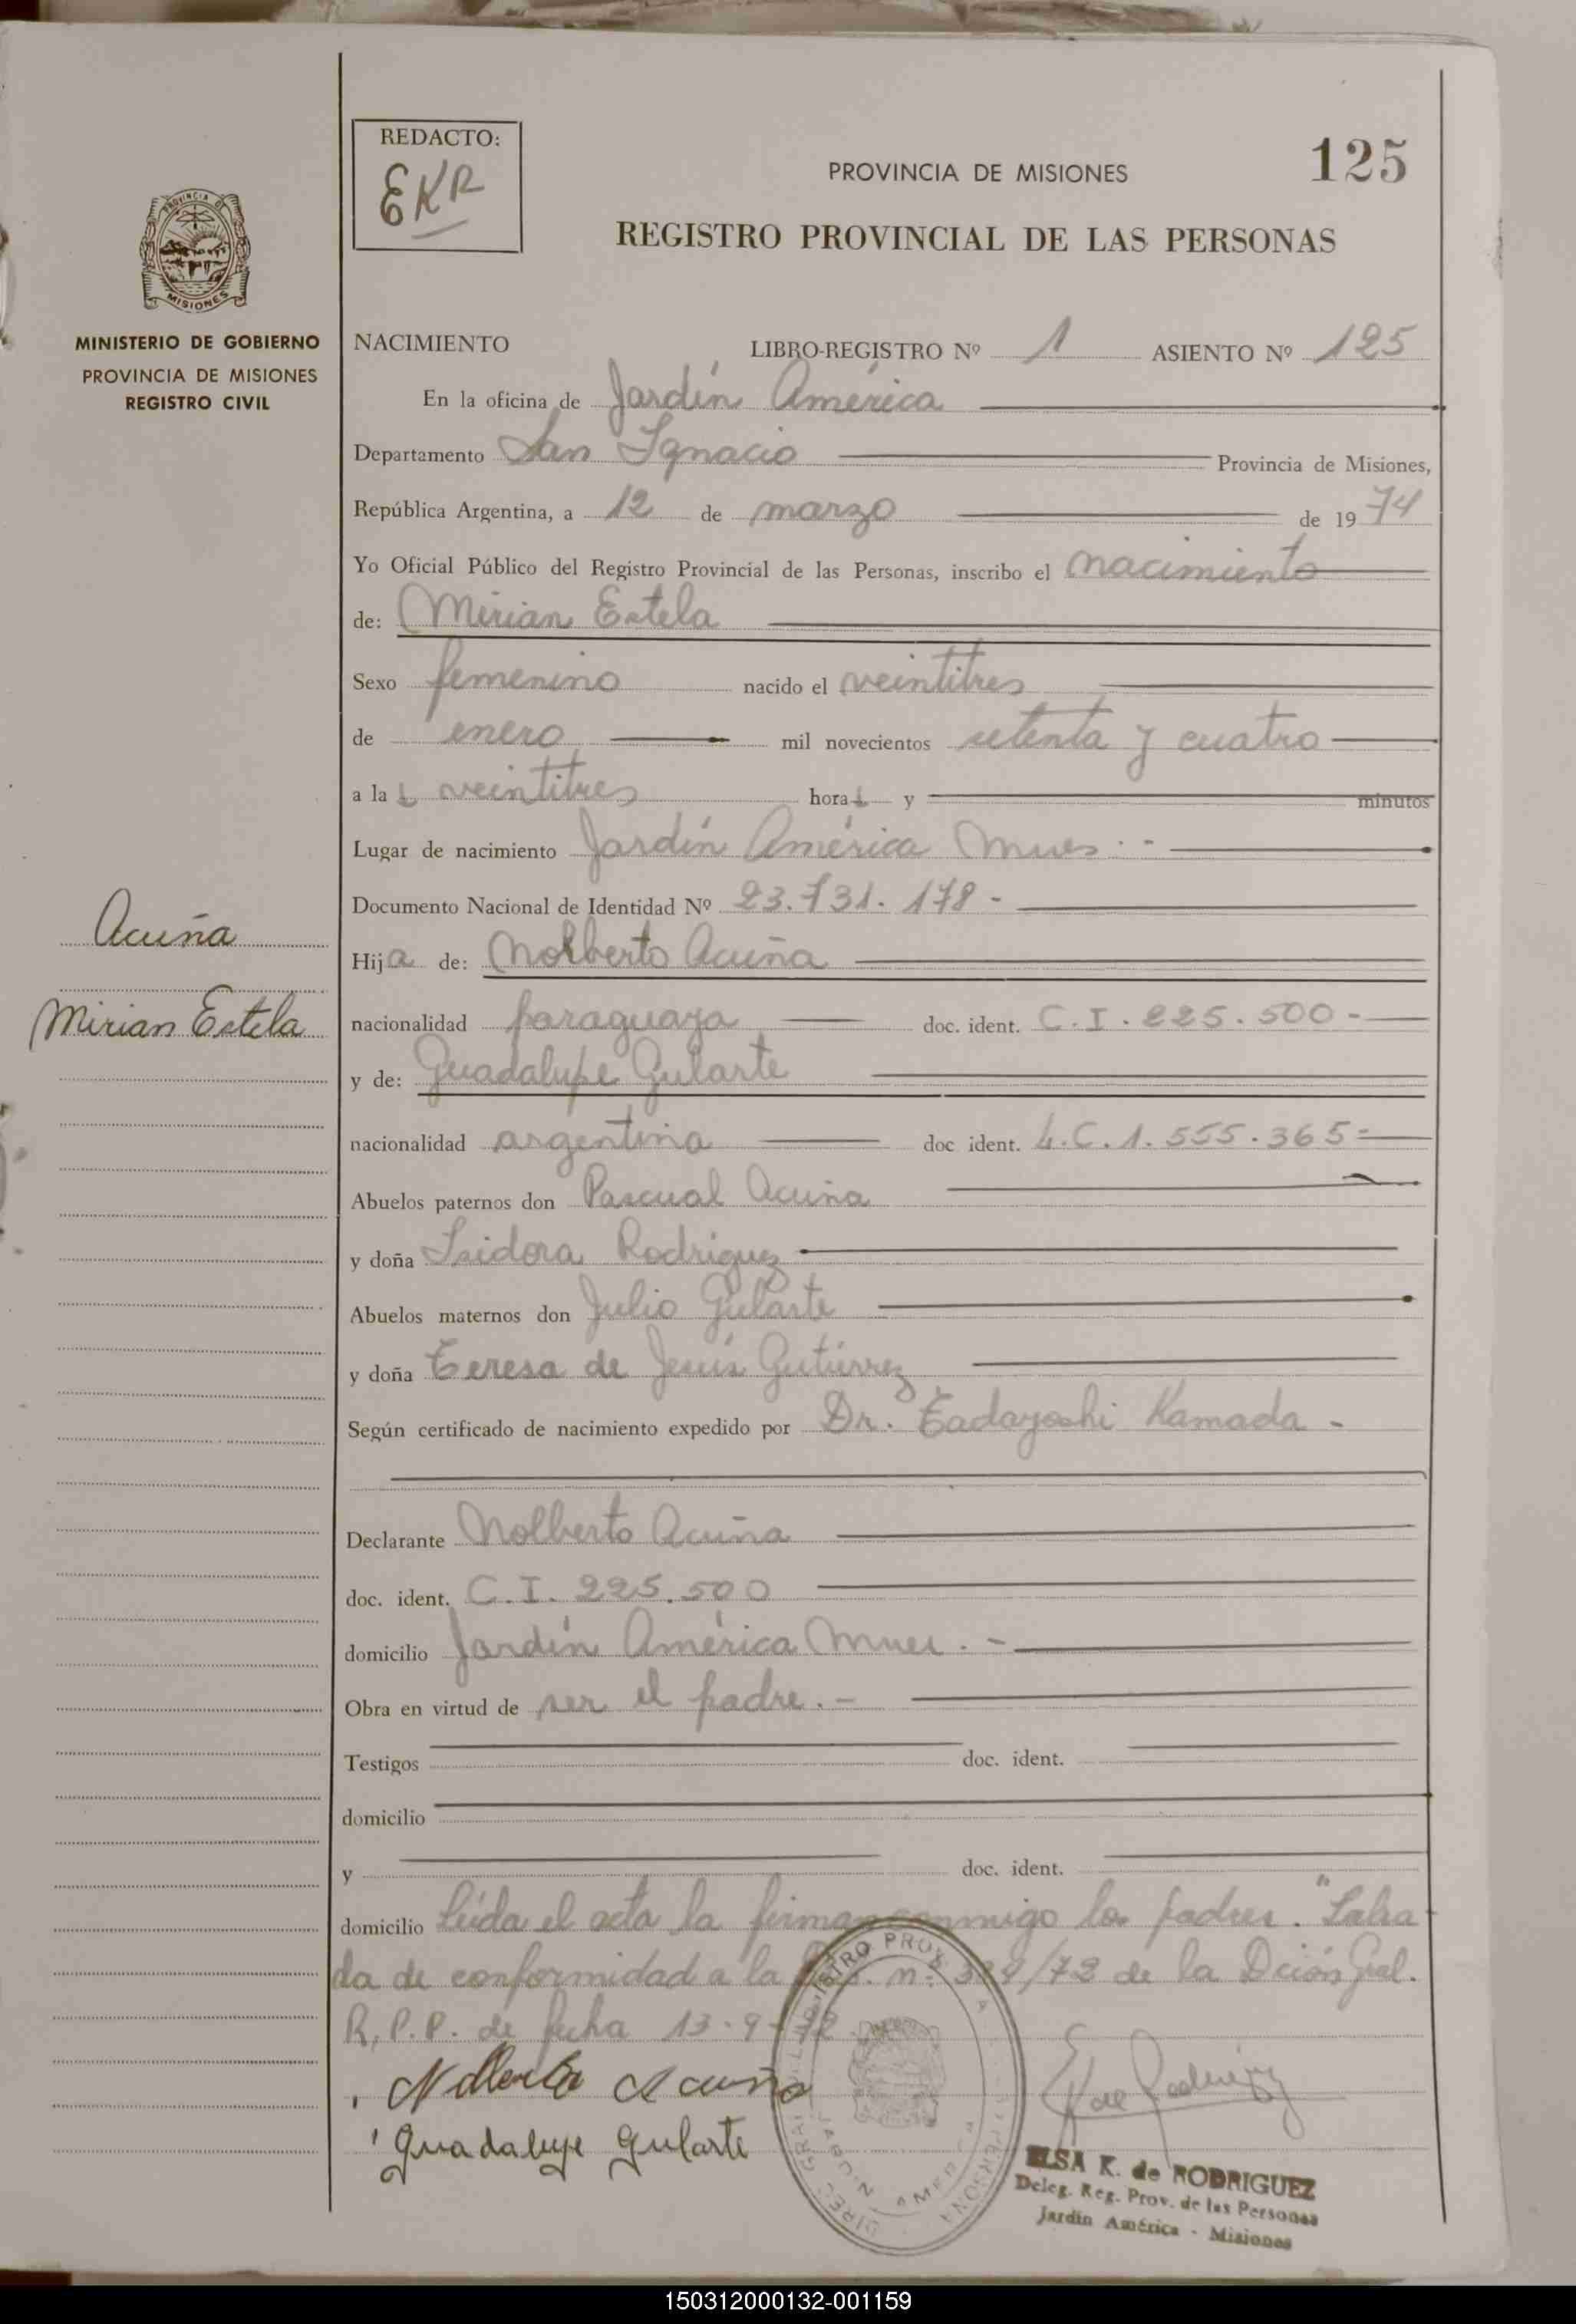 REDACTO:
EKR
PROVINCIA DE MISIONES
125
REGISTRO PROVINCIAL DE LAS PERSONAS
PROVINCIA DE
MISIONES
MINISTERIO DE GOBIERNO
PROVINCIA DE MISIONES
REGISTRO CIVIL
NACIMIENTO LIBRO-REGISTRO Nº 1 ASIENTO Nº 125
En la oficina de Jardín América
Departamento San Ignacio Provincia de Misiones,
República Argentina, a 12 de marzo de 1974
Yo Oficial Público del Registro Provincial de las Personas, inscribo el nacimiento
de: Mirian Estela
Sexo femenino nacido el veintitres
de enero mil novecientos setenta y cuatro
a las veintitres horas y minutos
Lugar de nacimiento Jardín América Mnes.-
Documento Nacional de Identidad Nº 23.731.178-
Acuña
Hija de: Nolberto Acuña
Mirian Estela
nacionalidad paraguaya doc. ident. C.I. 225.500-
y de: Guadalupe Gularte
nacionalidad argentina doc ident. L.C. 1.555.365-
Abuelos paternos don Pascual Acuña
y doña Isidora Rodriguez
Abuelos maternos don Julio Gularte
y doña Teresa de Jesús Gutiérrez
Según certificado de nacimiento expedido por Dr. Tadayoshi Kamada -
Declarante Nolberto Acuña
doc. ident. C.I. 225.500
domicilio Jardín América Mnes.-
Obra en virtud de ser el padre.-
Testigos doc. ident.
domicilio
y doc. ident.
domicilio Leída el acta la firman conmigo los padres. "Labra-
da de conformidad a la nº /73 de la Dción Gral.
R.P.P. de fecha 13-9-
Nolberto Acuña
Guadalupe Gularte
ELSA K. de RODRIGUEZ
Deleg. Reg. Prov. de las Personas
Jardín América - Misiones
150312000132-001159